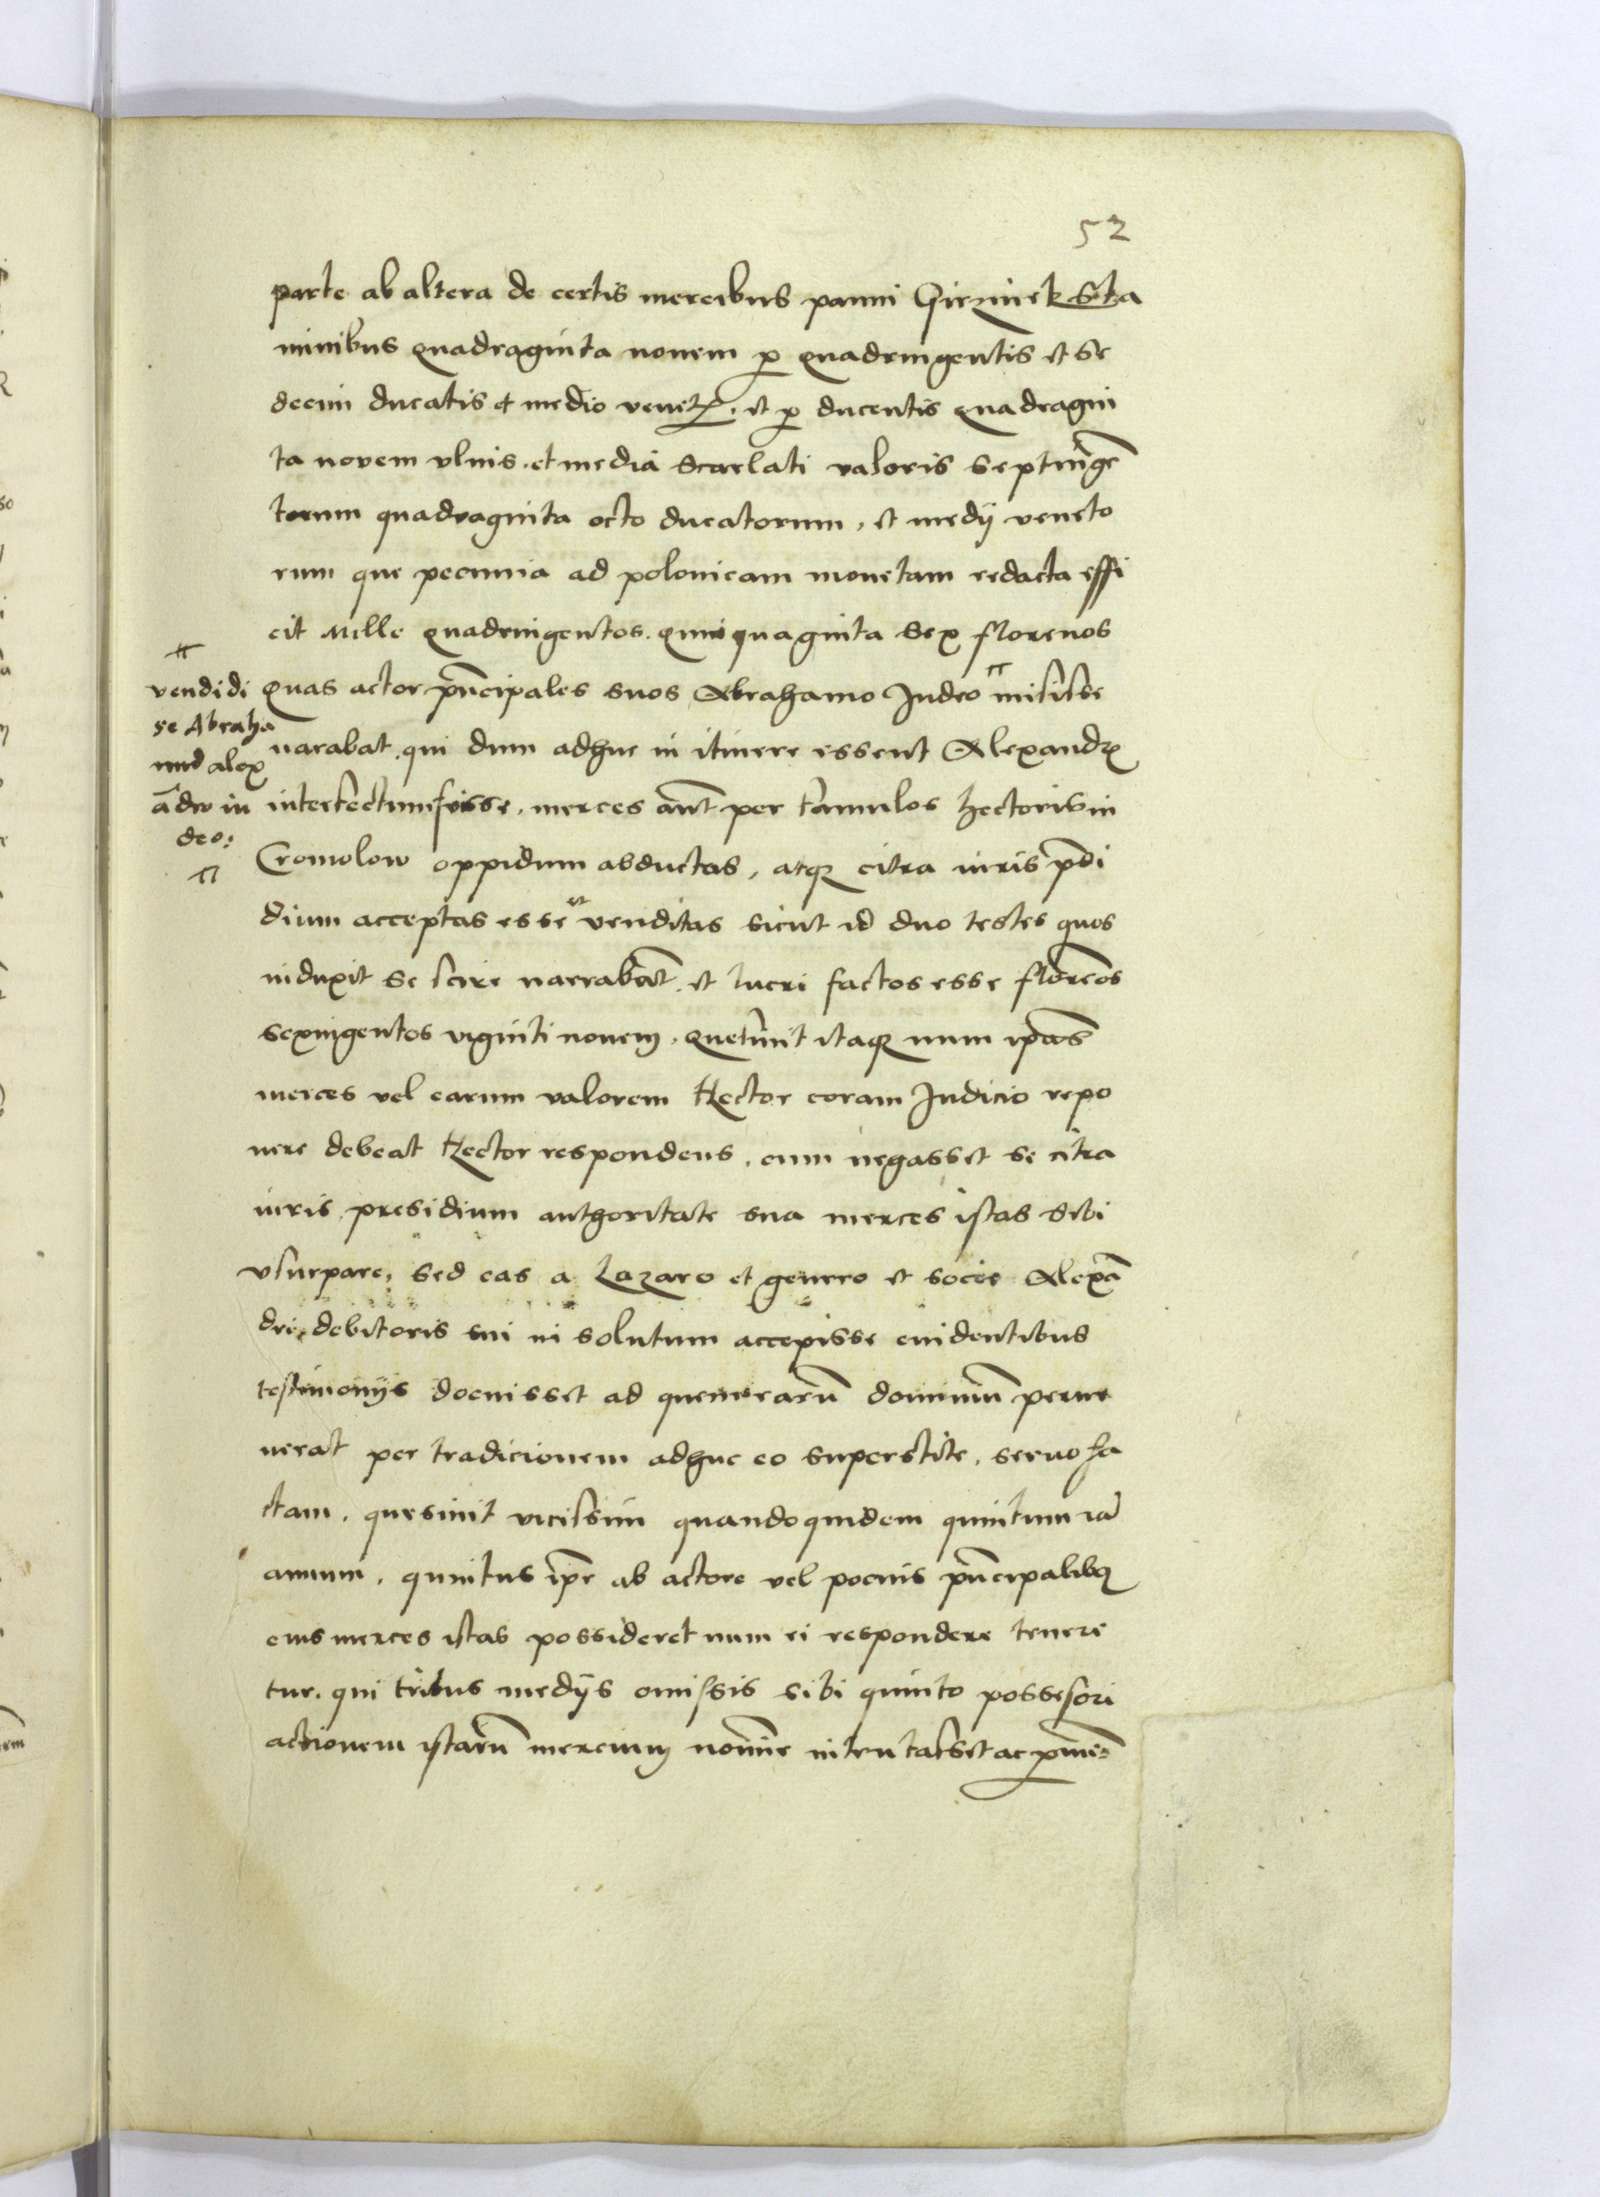 52
parte ab altera de certis mercibus panni Girzinek Sta
minibus quadraginta nouem p quadringentis et se
decim ducatis et medio venet. et p ducentis quadragin
ta novem vlnis. et media scarlati valoris septinge
torum quadraginta octo ducatorum, et medij veneto
rum que pecunia ad polonicam monetam redacta effi
cit Mille quadringentos. quinquaginta sex florenos
quas actor pncipales suos Abrahamo Judeo misisse
vendidi
se Abraha
mud alex
adro iu
deo:
narabat. qui dum adhuc in itinere essent Alexandr
interfectum fuisse, merces aut per famulos hectoris in
Cromolow oppidum abductas, atq citra iuris psi
dium acceptas esse et venditas sicut id duo testes quos
induxit se scire narrabat. et lucri factos esse florenos
sexingentos viginti nouem, itaq num ipas
merces vel earum valorem Hector coram Judicio repo
nere debeat Hector respondens, cum negasset se citra
iuris presidium authoritate sua merces istas sibi
vsurpare, sed eas a Lazaro et genero et socio Alexa
dri debitoris sui in solutum accepisse euidentibus
testimonijs docuisset ad quem earu dominiu perue
nerat per tradicionem adhuc eo superstite, seruo fa
ctam, quesiuit vicissim quandoquidem quintum ia
annum, quintus ipe ab actore vel pncipalibq
eius merces istas possideret num ei respondere tenere
tur. qui tribus medijs omissis sibi quinto possesori
actionem istaru mercium nomine intentasset ac